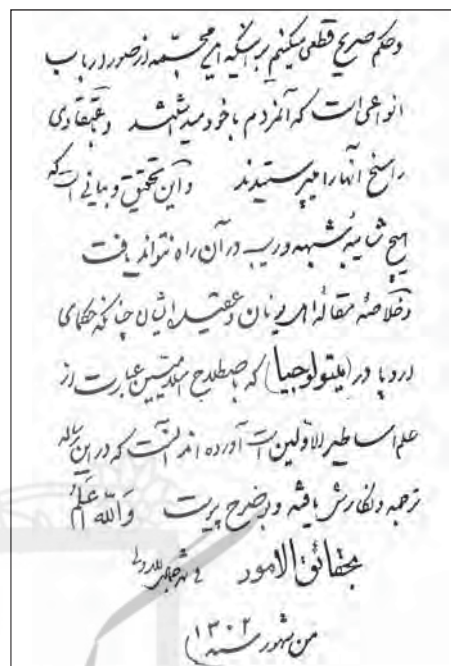 و حکم صریح قطعی میکنیم بر اینکه این مجسمه از صور ارباب
انواعی است که آنمردم با خود میداشتند و باعتقادی
راسخ آنها را میپرستیدند و این تحقیق و بیانی است که
هیچ شایبه شبهه و ریب در آن راه نتواند یافت
و خلاصهٔ مقالهٔ اهل یونان و عقیده ایشان چنانکه حکمای
اروپا در (میتولوجیا) که باصطلاح اسلامیین عبارت از
علم اساطیر الاولین است آورده اند آنست که در این رساله
ترجمه و نگارش یافته و بشرح پیوست وَاللّه اَعْلَمُ
بحقائق الامور فی شهر جمادی الاولی
من شهور سنه ۱۳۰۲